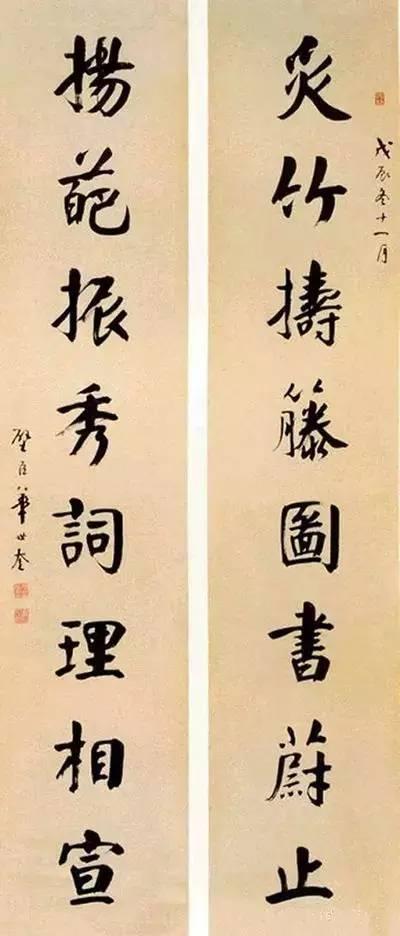 戊辰冬十一月
炙竹擣籐圖書蔚止
揚葩振秀詞理相宣
璧臣華世奎